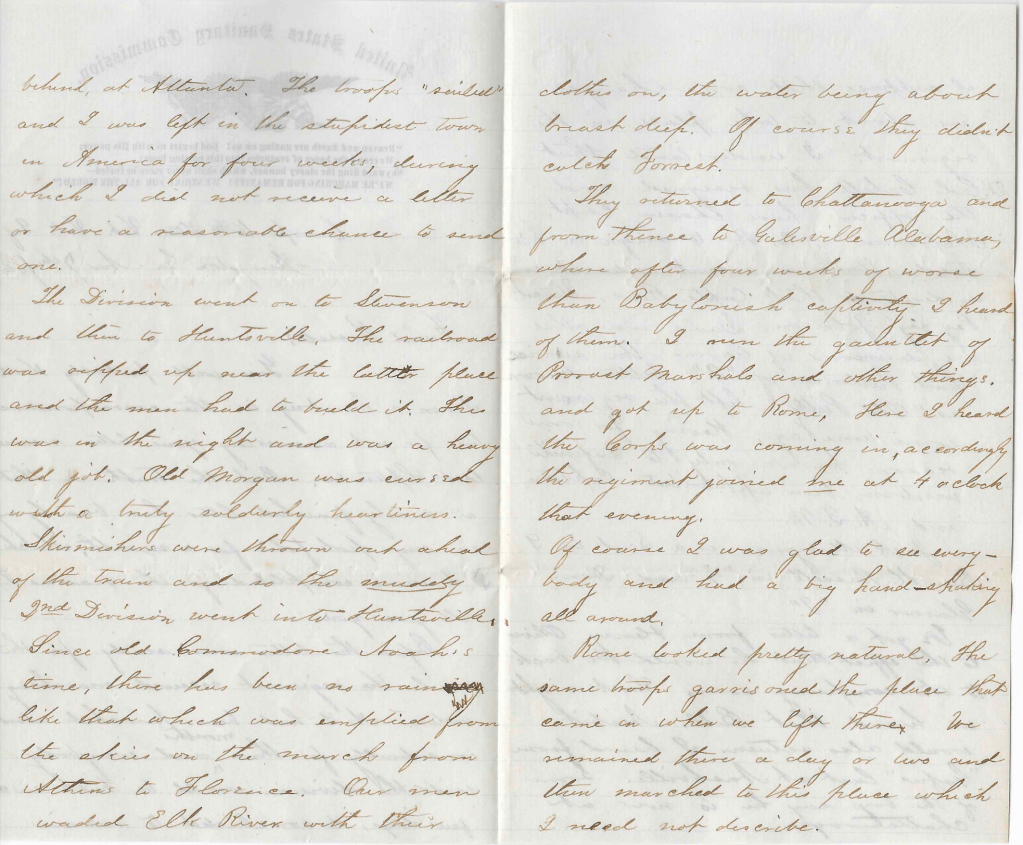 behind, at Atlanta. The troops "sailed"
and I was left in the stupidest town
in America for four weeks, during
which I did not receive a letter
or have a reasonable chance to send
one.
The Division went on to Stevenson
and then to Huntsville. The railroad
was ripped up near the latter place
and the men had to build it. This
was in the night and was a heavy
old job. Old Morgan was cursed
with a truly soldierly heartiness.
Skirmishers were thrown out ahead
of the train and so the muddy
2nd Division went into Huntsville.
Since old Commodore Noah's
time, there has been no rain
like that which was emptied from
the skies on the march from
Athens to Florence. Our men
waded Elk River with their
clothes on, the water being about
breast deep. Of course they didn't
catch Forrest.
They returned to Chattanooga and
from thence to Galesville Alabama,
where after four weeks of worse
than Babylonish captivity I heard
of them. I run the gauntlet of
Provost Marshals and other things.
and got up to Rome, Here I heard
the Corps was coming in, accordingly
the regiment joined me at 4 oclock
that evening.
Of course I was glad to see every-
body and had a big hand-shaking
all around.
Rome looked pretty natural. The
same troops garrisoned the place that
came in when we left there. We
remained there a day or two and
then marched to this place which
I need not describe.